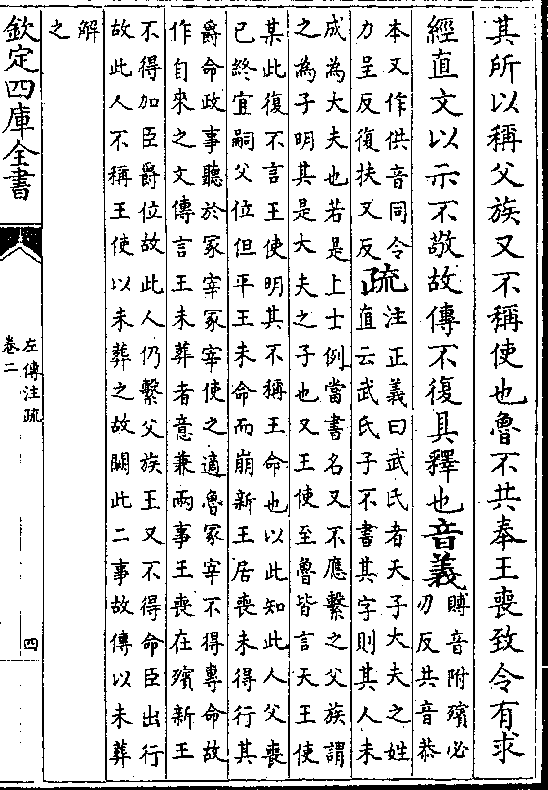 其所以稱父族又不稱使也魯不共奉王喪致令有求
經直文以示不敬故傳不復具釋也音義
賵音附殯必
刃反共音恭
本又作供音同令
力呈反復扶又反
疏
注正義曰武氏者天子大夫之姓
直云武氏子不書其字則其人未
成為大夫也若是上士例當書名又不應繫之父族謂
之為子明其是大夫之子也又王使至魯皆言天王使
某此復不言王使明其不稱王命也以此知此人父喪
已終宜嗣父位但平王未命而崩新王居喪未得行其
爵命政事聽於冢宰冢宰使之適魯冢宰不得專命故
作自來之文傳言王未葬者意兼兩事王喪在殯新王
不得加臣爵位故此人仍繫父族王又不得命臣出行
故此人不稱王使以未葬之故闕此二事故傳以未葬
解
之
欽定四庫全書
左傳注疏
卷二
四